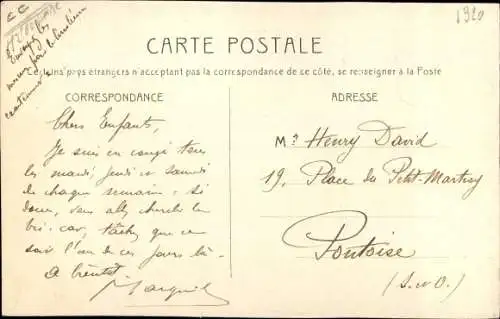 1320
CARTE POSTALE
Certains pays étrangers n'acceptant pas la correspondance de ce côté, se renseigner à la Poste
CORRESPONDANCE
Chers Enfants,
Je suis en congé tous
les mardi, jeudi et samedi
de chaque semaine; si
donc, vous allez chercher le
bri-car, tâchez que ce
soit l'un de ces jours là.
A bientôt.
ADRESSE
Mr Henry David
19, Place du Petit-Martroy
Pontoise
(S.-et-O.)